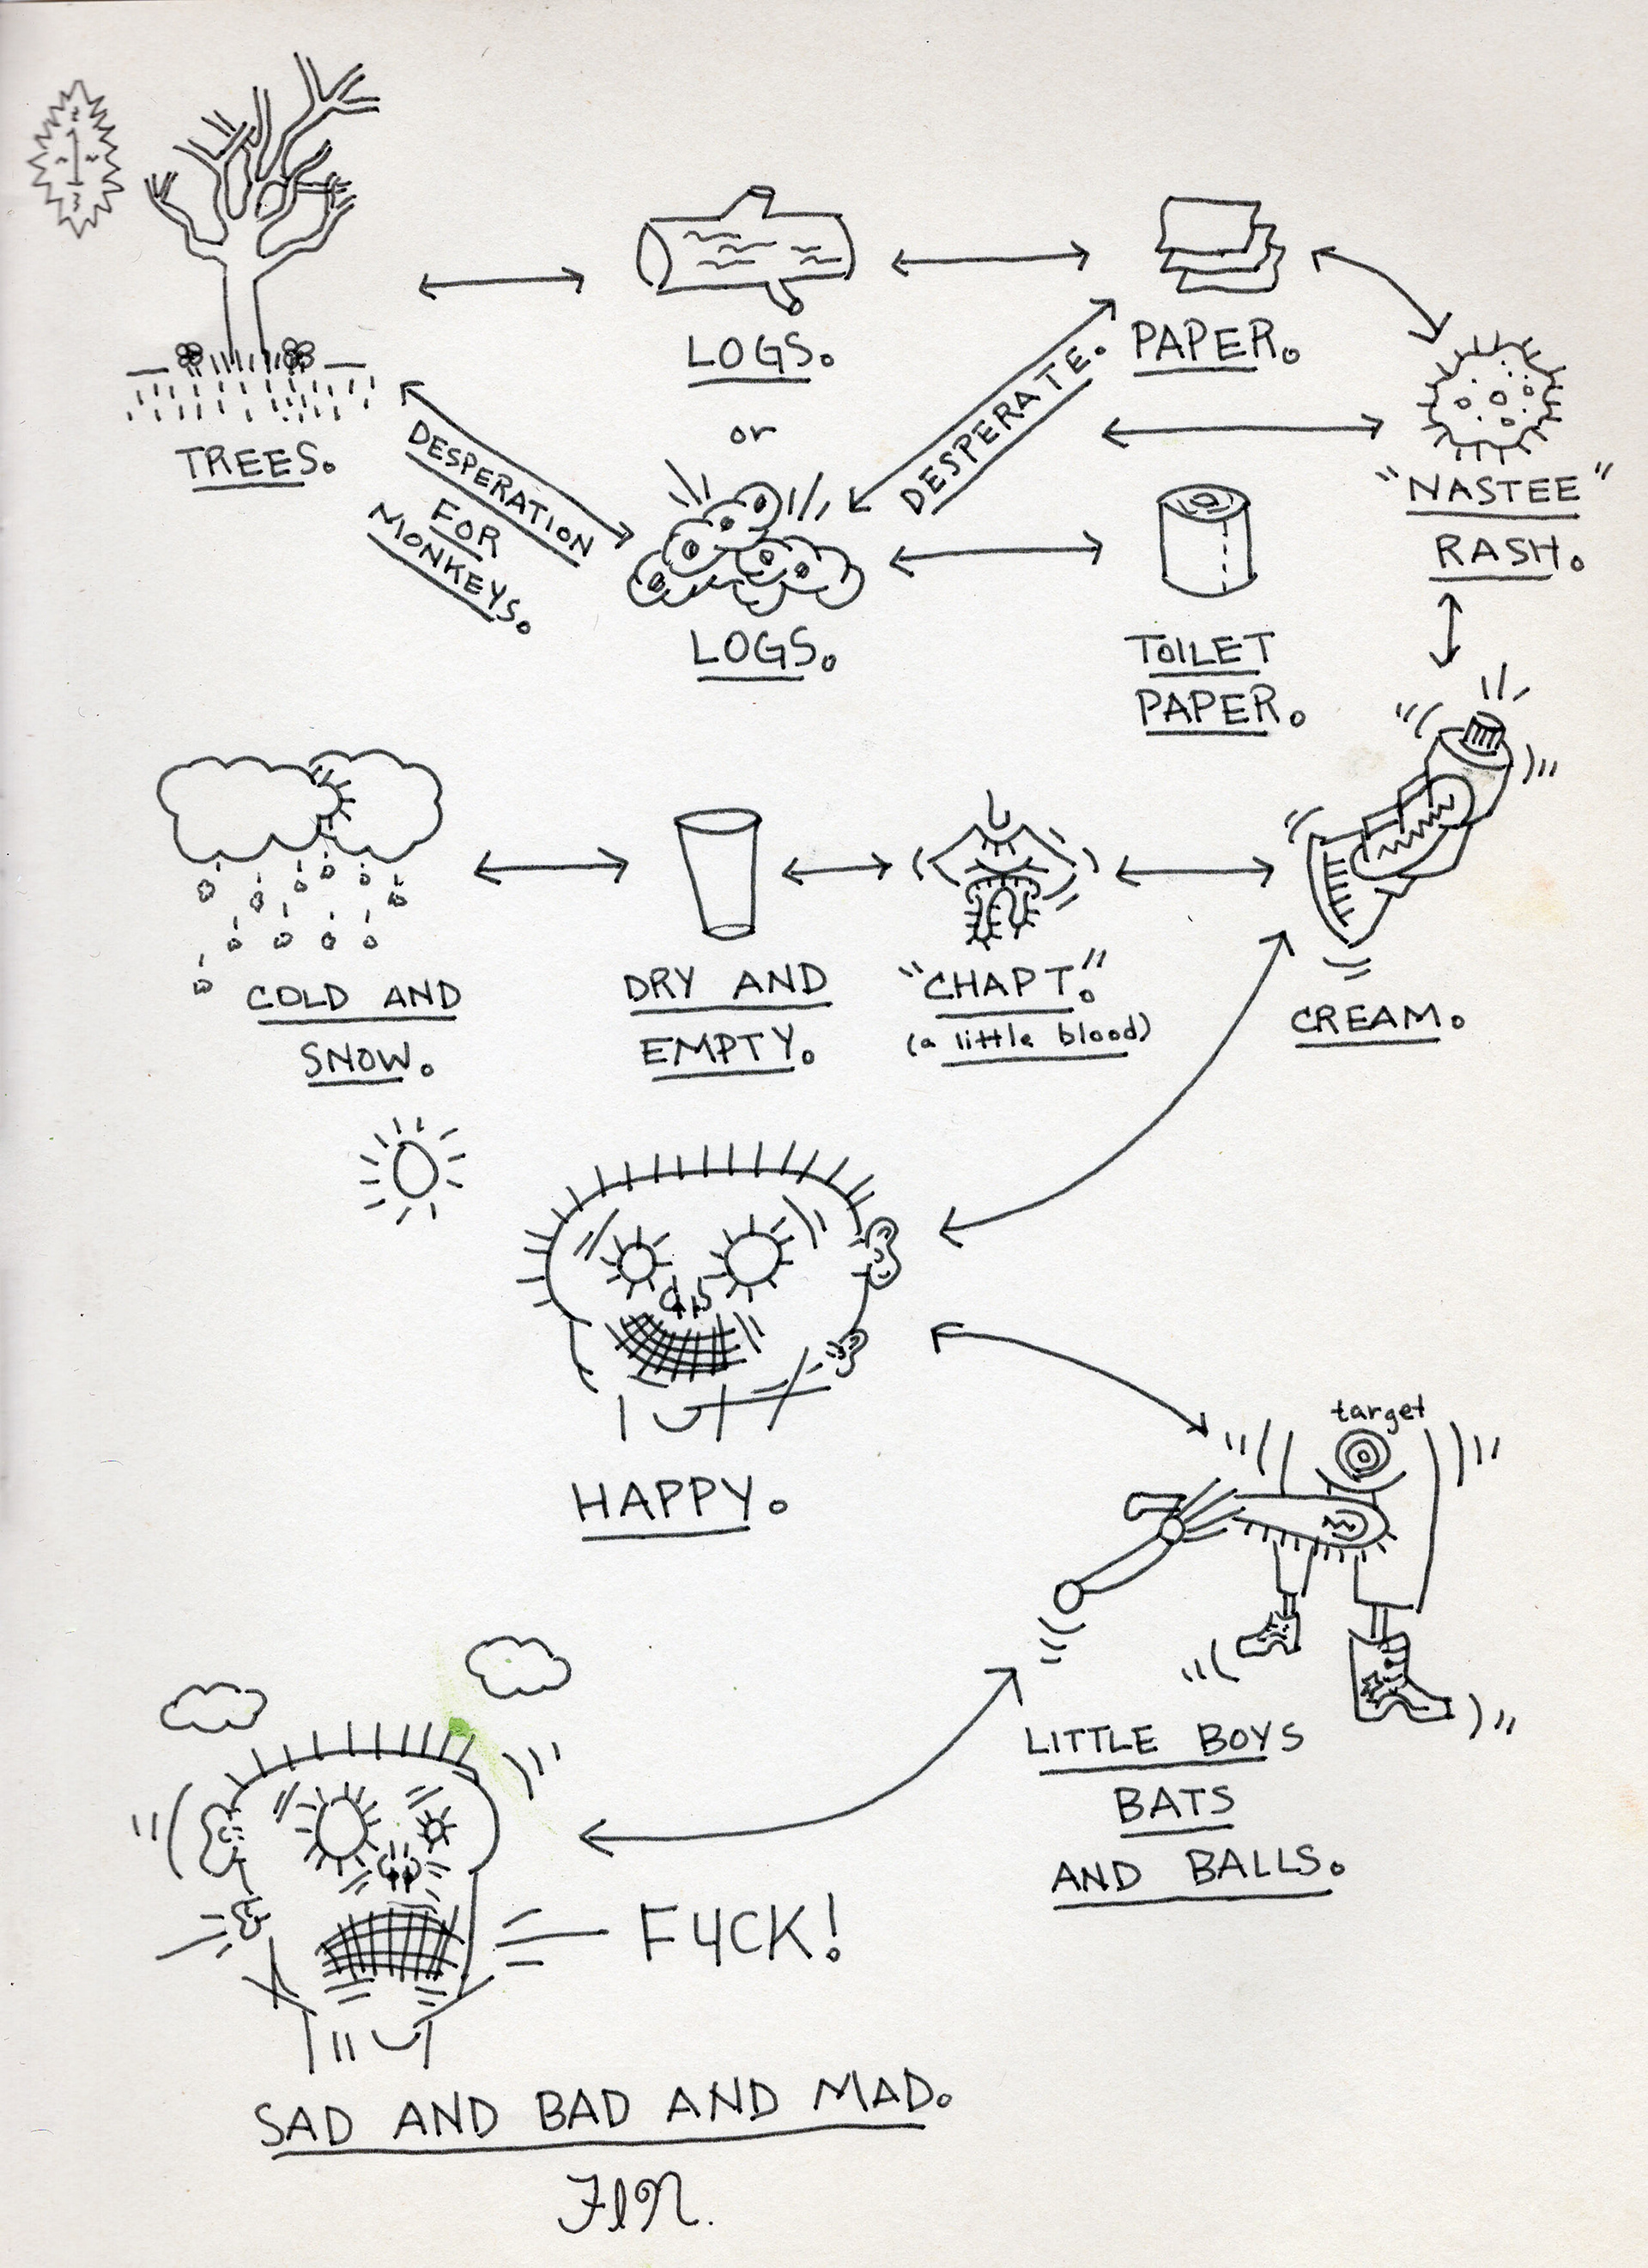 LOGS.
PAPER.
or
TREES.
DESPERATION
FOR
MONKEYS.
DESPERATE.
"NASTEE"
RASH.
LOGS.
TOILET
PAPER.
COLD AND
SNOW.
DRY AND
EMPTY.
"CHAPT."
(a little blood)
CREAM.
HAPPY.
target
LITTLE BOYS
BATS
AND BALLS.
FUCK!
SAD AND BAD AND MAD.
FIN.